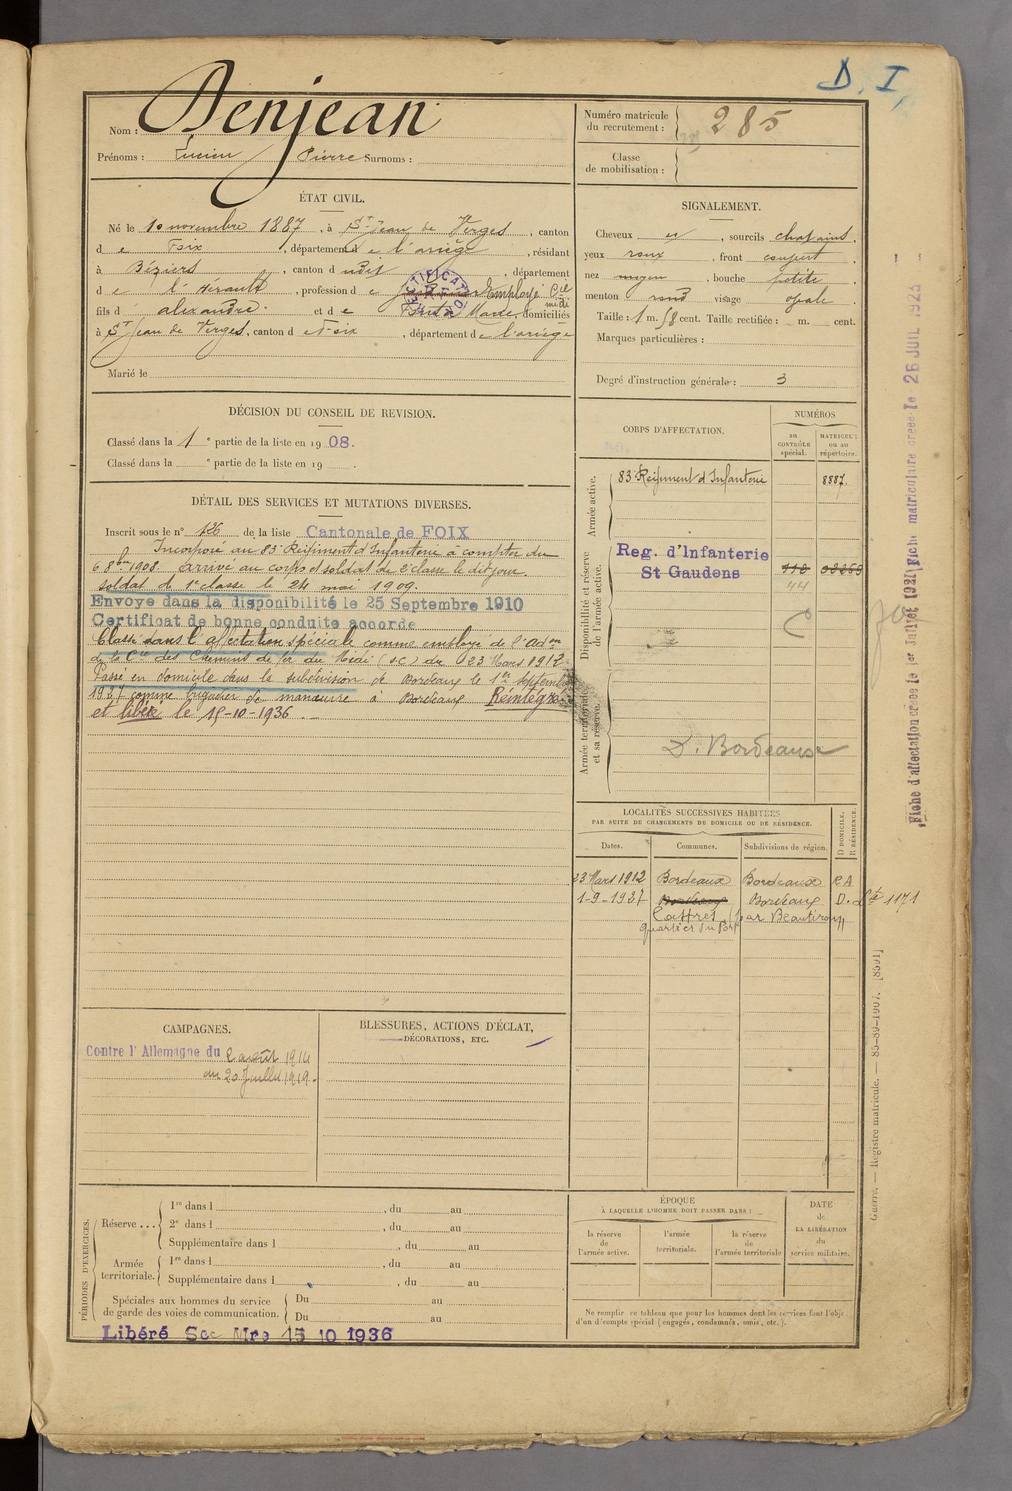 D. I.
Nom : Denjean
Prénoms : Lucien Pierre Surnoms :
Numéro matricule du recrutement : 285
Classe de mobilisation :
ÉTAT CIVIL.
Né le 10 novembre 1887, à St Jean de Verges, canton
de Foix, département de l'ariège, résidant
à Béziers, canton dudit, département
de l'Hérault, profession de Employé Cie midi
fils d' alexandre et de Marie, domiciliés
à St Jean de Verges, canton de Foix, département de l'ariège
Marié le
SIGNALEMENT.
Cheveux et, sourcils chatains,
yeux roux, front couvert,
nez moyen, bouche petite,
menton rond visage ovale
Taille : 1 m. 58 cent. Taille rectifiée : m. cent.
Marques particulières :
Degré d'instruction générale : 3
DÉCISION DU CONSEIL DE REVISION.
Classé dans la 1e partie de la liste en 1908.
Classé dans la e partie de la liste en 19 .
DÉTAIL DES SERVICES ET MUTATIONS DIVERSES.
Inscrit sous le n° 126 de la liste Cantonale de FOIX
Incorporé au 83e Régiment d'Infanterie à compter du
6 8bre 1908. arrivé au corps et soldat de 2e classe le dit jour.
soldat de 1e classe le 24 mai 1909.
Envoyé dans la disponibilité le 25 Septembre 1910
Certificat de bonne conduite accordé
Classé dans l'affectation spéciale comme employé de l'Adon
de la Cie des Chemins de fer du Midi (S.C) du 23 Mars 1912
Passé en domicile dans la subdivision de Bordeaux le 1er Septembre
1927 comme brigadier de manœuvre à Bordeaux Réintégré
et libéré le 15-10-1936.
CORPS D'AFFECTATION.
NUMÉROS
au CONTRÔLE spécial.
MATRICULE ou au répertoire.
Armée active.
83e Régiment d'Infanterie 8887.
Disponibilité et réserve de l'armée active.
Reg. d'Infanterie
St Gaudens
44
C
Armée territoriale et sa réserve.
D. Bordeaux
LOCALITÉS SUCCESSIVES HABITÉES
PAR SUITE DE CHANGEMENTS DE DOMICILE OU DE RÉSIDENCE.
Dates. Communes. Subdivisions de région. D DOMICILE. R RÉSIDENCE.
23 Mars 1912 Bordeaux Bordeaux R A
1-9-1927 Bordeaux Bordeaux D. 1171
Castres (par Beautiran)
quartier du Port
CAMPAGNES.
Contre l'Allemagne du 2 août 1914
au 20 Juillet 1919.
BLESSURES, ACTIONS D'ÉCLAT,
DÉCORATIONS, ETC.
PÉRIODES D'EXERCICES.
Réserve ...
1re dans l , du au
2e dans l , du au
Supplémentaire dans l , du au
Armée territoriale.
1re dans l , du au
Supplémentaire dans l , du au
Spéciales aux hommes du service de garde des voies de communication.
Du au
Du au
Libéré Sce Mre 15 10 1936
ÉPOQUE
À LAQUELLE L'HOMME DOIT PASSER DANS :
la réserve de l'armée active.
l'armée territoriale.
la réserve de l'armée territoriale
DATE de LA LIBÉRATION du service militaire.
Ne remplir ce tableau que pour les hommes dont les services font l'objet
d'un décompte spécial (engagés, condamnés, omis, etc.).
Fiche d'affectation créée le 1er Juillet 1921 Fiche matriculaire créée le 26 JUIL 1923
Guerre. — Registre matricule. — 85-89-1907. [8591]